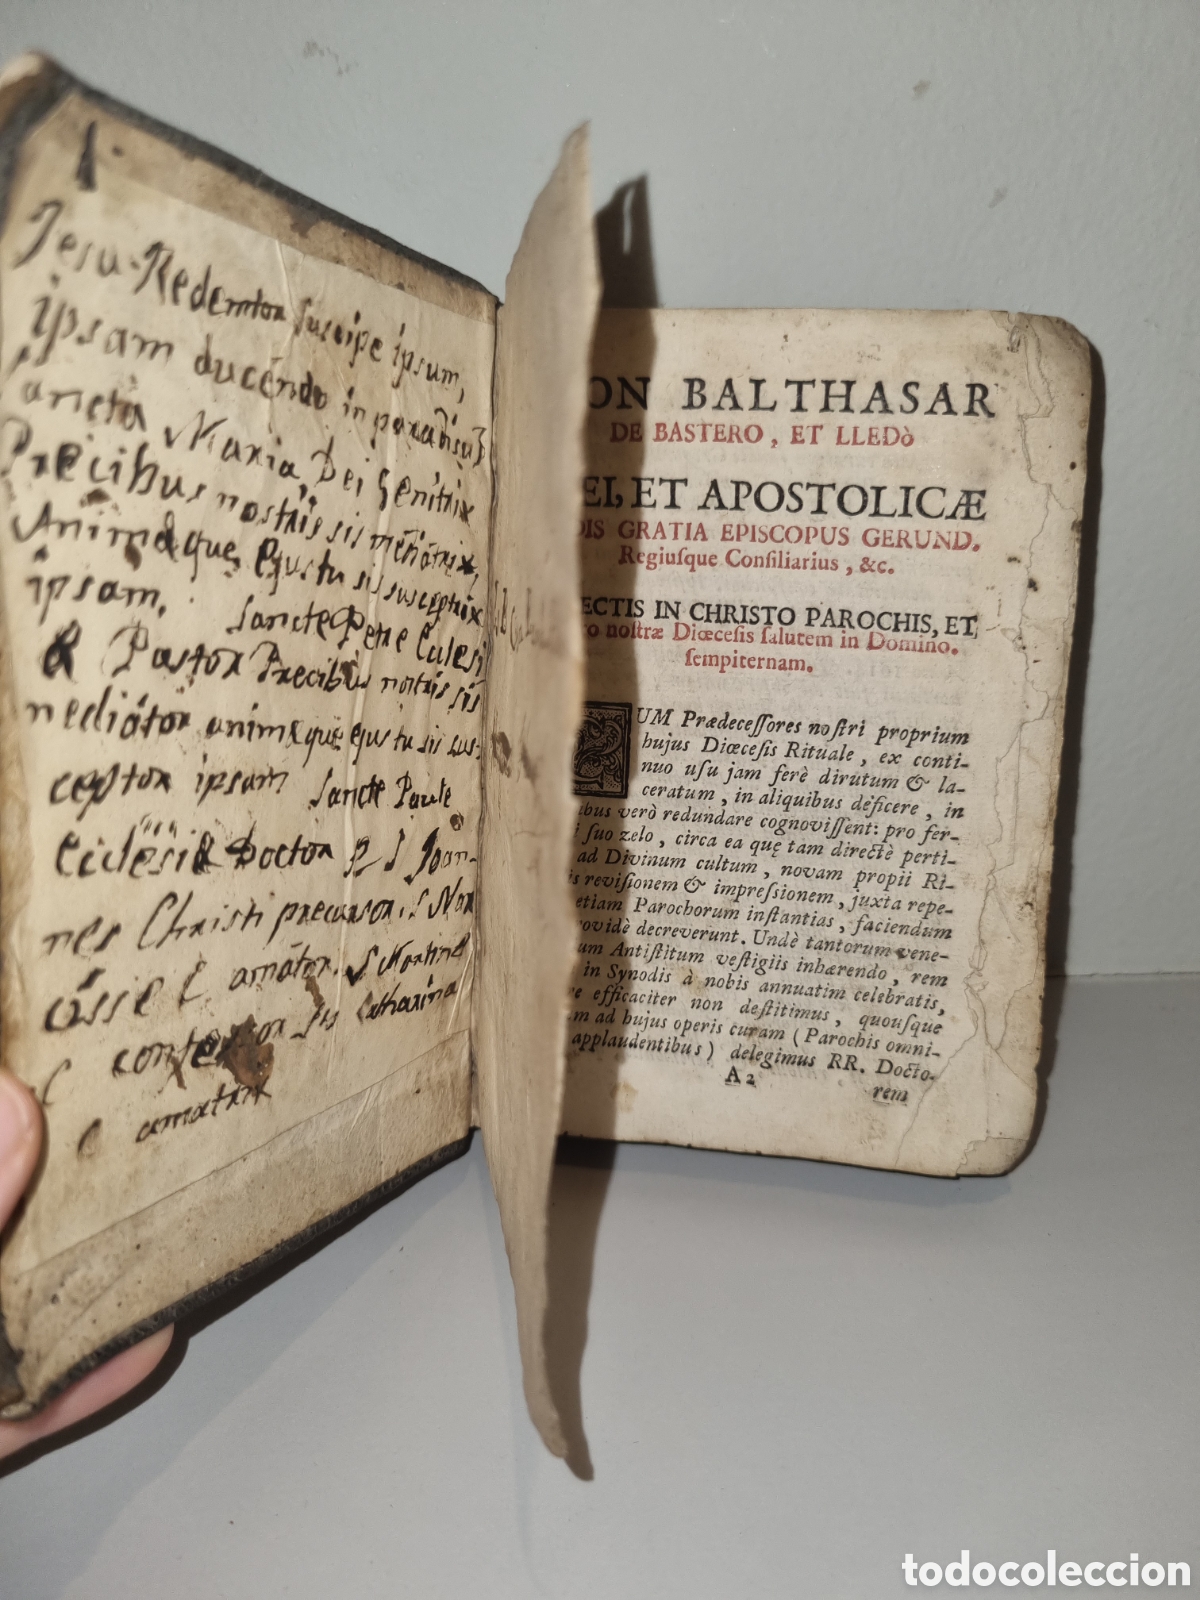 Jesu-Redemtor suscipe ipsum,
ipsam ducéndo in paradisu
ancta Maria Dei Genitrix
Precibus nostris sis mediátrix,
Animæque ejus tu sis susceptrix
ipsam. Sancte Petre Eclesi
æ Pastor Precibus nostris sis
mediátor animæque ejus tu sis sus-
ceptor ipsam Sancte Paule
Eclesiæ Doctor S Joan-
nes Christi precursor. S Nar
císse amátor. S Martine
confessor Sta Catharina
amatrix
ON BALTHASAR
DE BASTERO, ET LLEDò
EI, ET APOSTOLICÆ
DIS GRATIA EPISCOPUS GERUND.
Regiusque Consiliarius, &c.
ECTIS IN CHRISTO PAROCHIS, ET
ro nostræ Diœcesis salutem in Domino.
sempiternam.
UM Prædecessores nostri proprium
hujus Diœcesis Rituale, ex conti-
nuo usu jam ferè dirutum & la-
ceratum, in aliquibus déficere, in
ibus verò redundare cognovissent: pro fer-
i suo zelo, circa ea quę tam directè perti-
ad Divinum cultum, novam propii Ri-
is revisionem & impressionem, juxta repe-
etiam Parochorum instantias, faciendum
rovidè decreverunt. Undè tantorum vene-
um Antistitum vestigiis inhærendo, rem
in Synodis à nobis annuatim celebratis,
re efficaciter non destitimus, quousque
m ad hujus operis curam (Parochis omni-
applaudentibus) delegimus RR. Docto-
A2 rem
todocoleccion